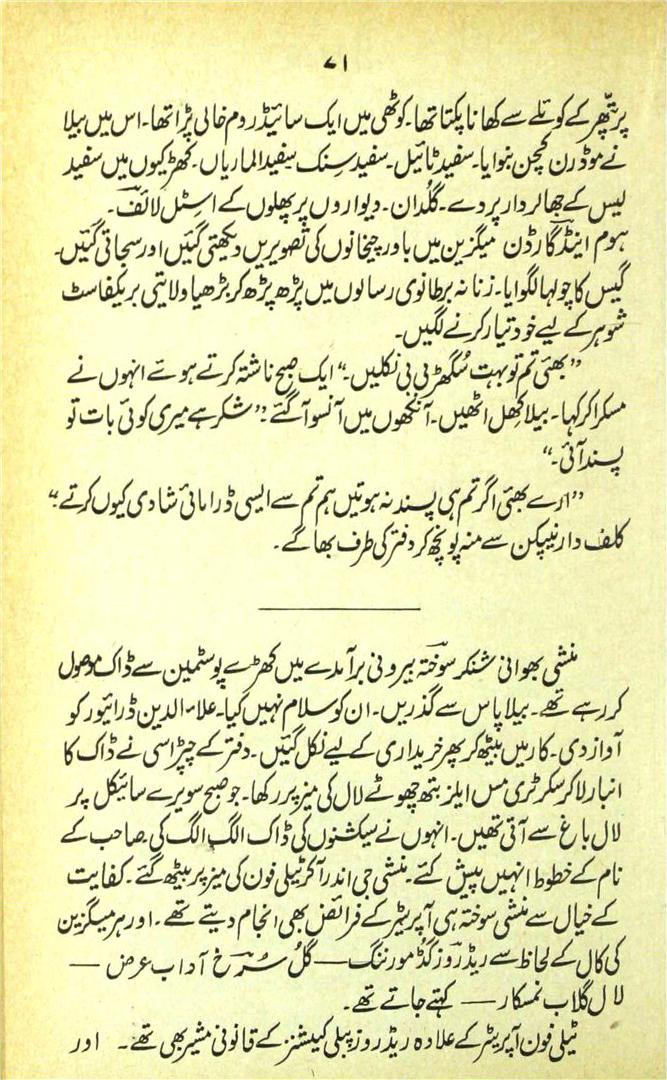 ۷۱
پر پتھر کے کوئلے سے کھانا پکتا تھا۔ کوٹھی میں ایک سائیڈ روم خالی پڑا تھا۔ اس میں بیلا
نے موڈرن کچن بنوایا۔ سفید ٹائیل۔ سفید سنک سفید الماریاں۔ کھڑکیوں میں سفید
لیس کے جھالر دار پردے۔ گلُدان۔ دیواروں پر پھلوں کے اسٹل لائف۔
ہوم اینڈ گارڈن میگزین میں باورچیخانوں کی تصویریں دیکھتی گئیں اور سجاتی گئیں۔
گیس کا چولہا لگوایا۔ زنانہ برطانوی رسالوں میں پڑھ پڑھ کر بڑھیا ولایتی بریکفاسٹ
شوہر کے لیے خود تیار کرنے لگیں۔
”بھئی تم تو بہت سُگھڑ بی بی نکلیں۔“ ایک صبح ناشتہ کرتے ہوئے انہوں نے
مسکرا کر کہا۔ بیلا کِھل اٹھیں۔ آنکھوں میں آنسو آ گئے۔ ”شکر ہے میری کوئی بات تو
پسند آئی۔“
”ارے بھئی اگر تم ہی پسند نہ ہوتیں ہم تم سے ایسی ڈرامائی شادی کیوں کرتے۔“
کلف دار نیپکن سے منہ پونچھ کر دفتر کی طرف بھاگے۔
منشی بھوانی شنکر سوختہ بیرونی برآمدے میں کھڑے پوسٹمین سے ڈاک موصول
کر رہے تھے۔ بیلا پاس سے گذریں۔ ان کو سلام نہیں کیا۔ علاء الدین ڈرائیور کو
آواز دی۔ کار میں بیٹھ کر پھر خریداری کے لیے نکل گئیں۔ دفتر کے چپڑاسی نے ڈاک کا
انبار لا کر سکرٹری مس ایلزبتھ چھوٹے لال کی میز پر رکھا۔ جو صبح سویرے سائیکل پر
لال باغ سے آتی تھیں۔ انہوں نے سیکشنوں کی ڈاک الگ الگ کی۔ صاحب کے
نام کے خطوط انہیں پیش کئے۔ منشی جی اندر آ کر ٹیلی فون کی میز پر بیٹھ گئے۔ کفایت
کے خیال سے منشی سوختہ ہی آپریٹر کے فرائض بھی انجام دیتے تھے۔ اور ہر میگزین
کی کال کے لحاظ سے ریڈ روز گڈ مورننگ — گلُ سُرخ آداب عرض —
لال گلاب نمسکار — کہتے جاتے تھے۔
ٹیلی فون آپریٹر کے علادہ ریڈ روز پبلی کیشنز کے قانونی مشیر بھی تھے۔ اور